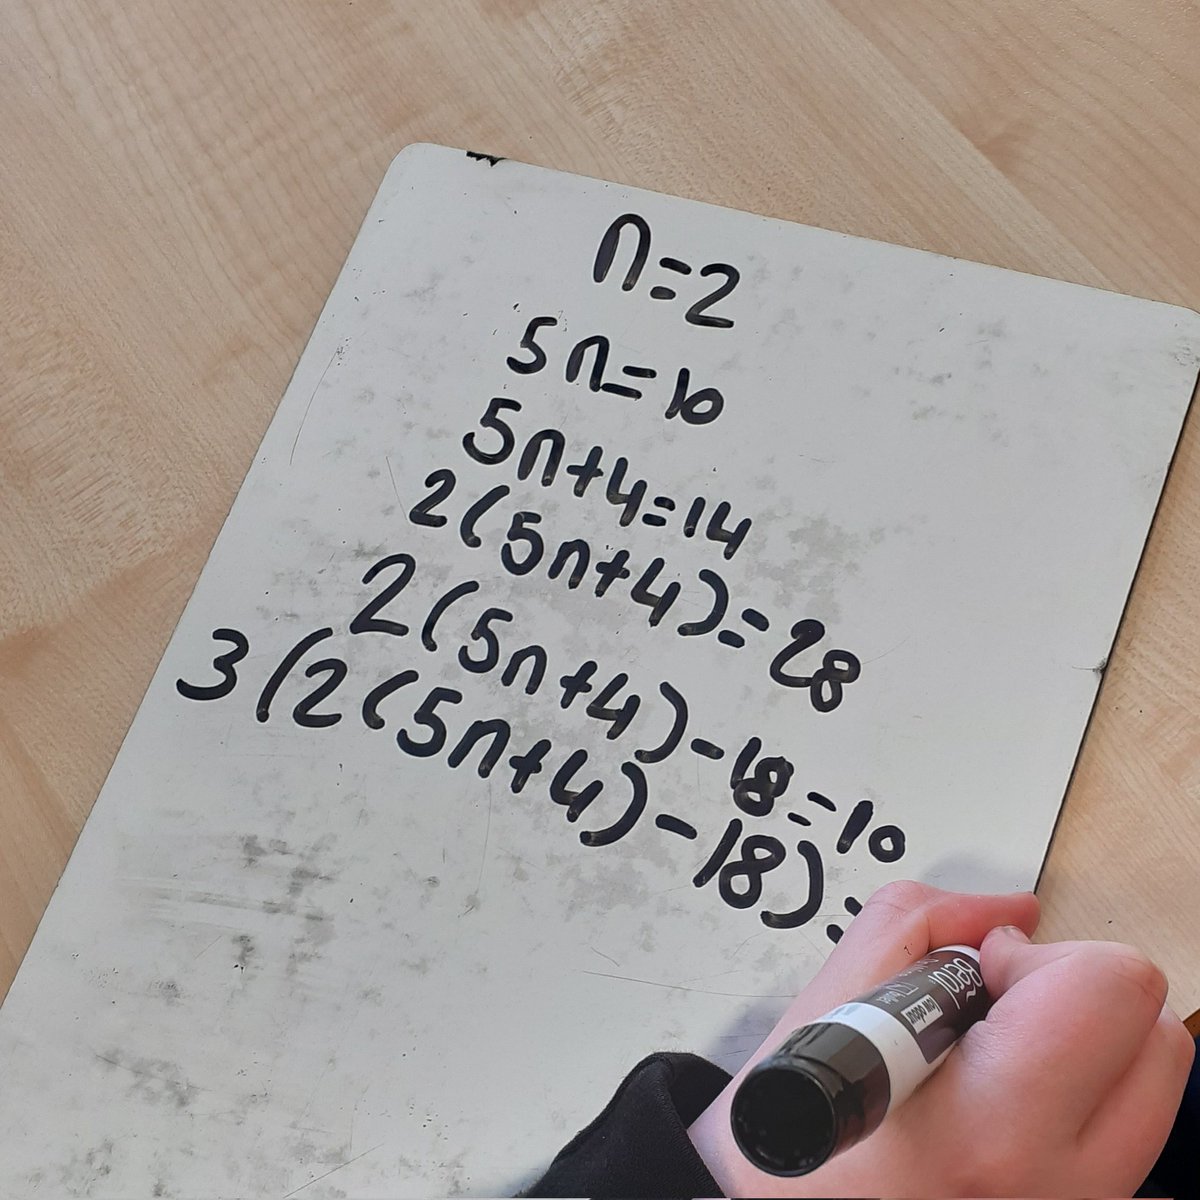 n=2
5n=10
5n+4=14
2(5n+4)=28
2(5n+4)-18=10
3(2(5n+4)-18)=
Berol
low odour